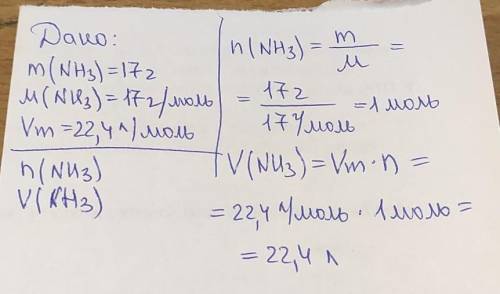 Дано:
m(NH3)=17г
M(NH3)=17г/моль
Vm=22,4л/моль
n(NH3)
V(NH3)
n(NH3)=m/M=
=17г/17г/моль=1моль
V(NH3)=Vm·n=
=22,4л/моль·1моль=
=22,4л